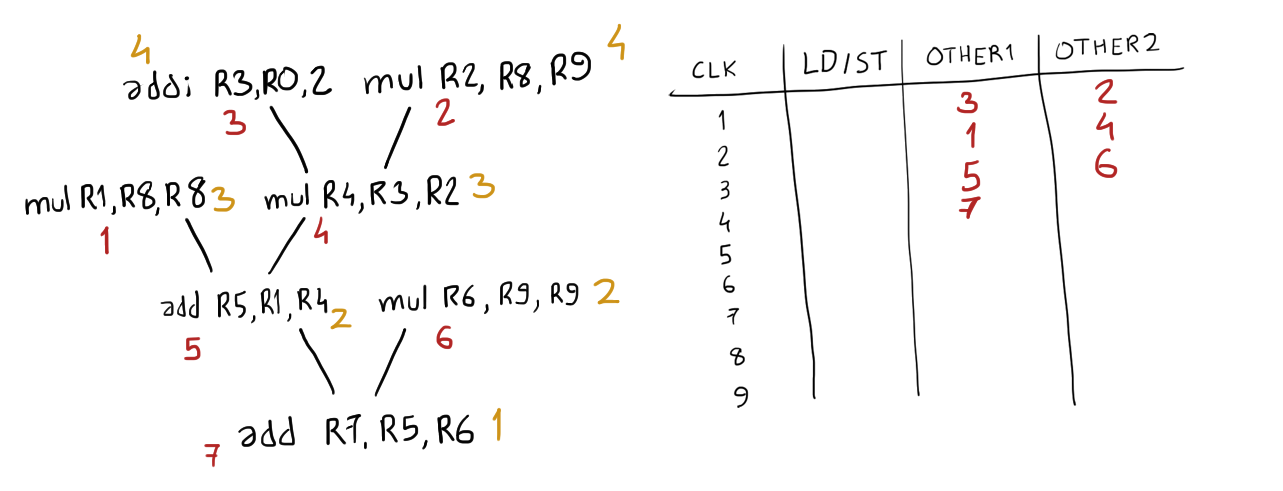 4 4
addi R3,R0,2 mul R2, R8, R9
3 2
mul R1,R8,R8 3 mul R4,R3,R2 3
1 4
add R5,R1,R4 2 mul R6,R9,R9 2
5 6
add R7,R5,R6 1
7
CLK LD/ST OTHER1 OTHER2
1 3 2
2 1 4
3 5 6
4 7
5
6
7
8
9